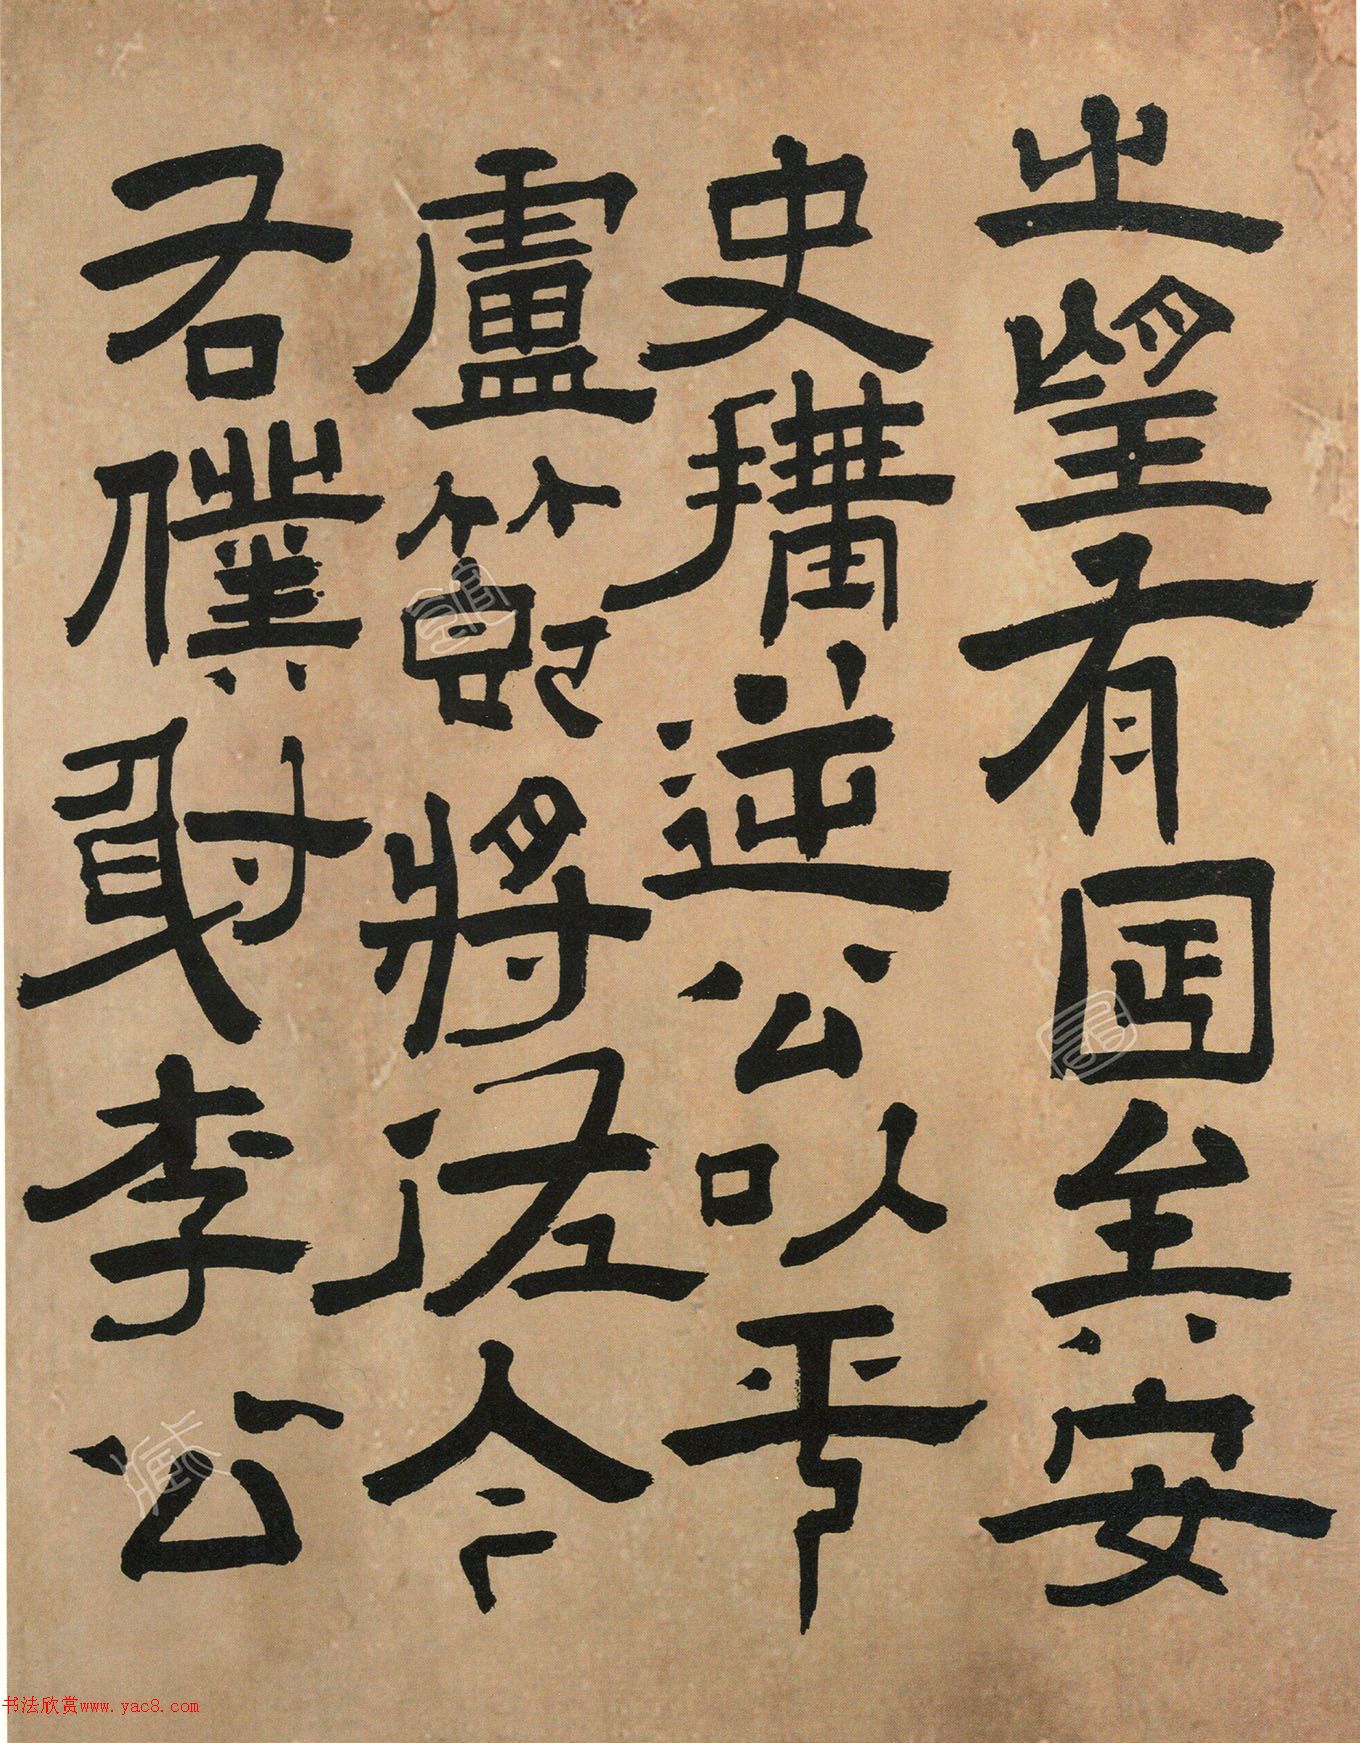 之望有國安
史構逆公以平
盧節將佐今
右僕射李公
书法欣赏www.yac8.com